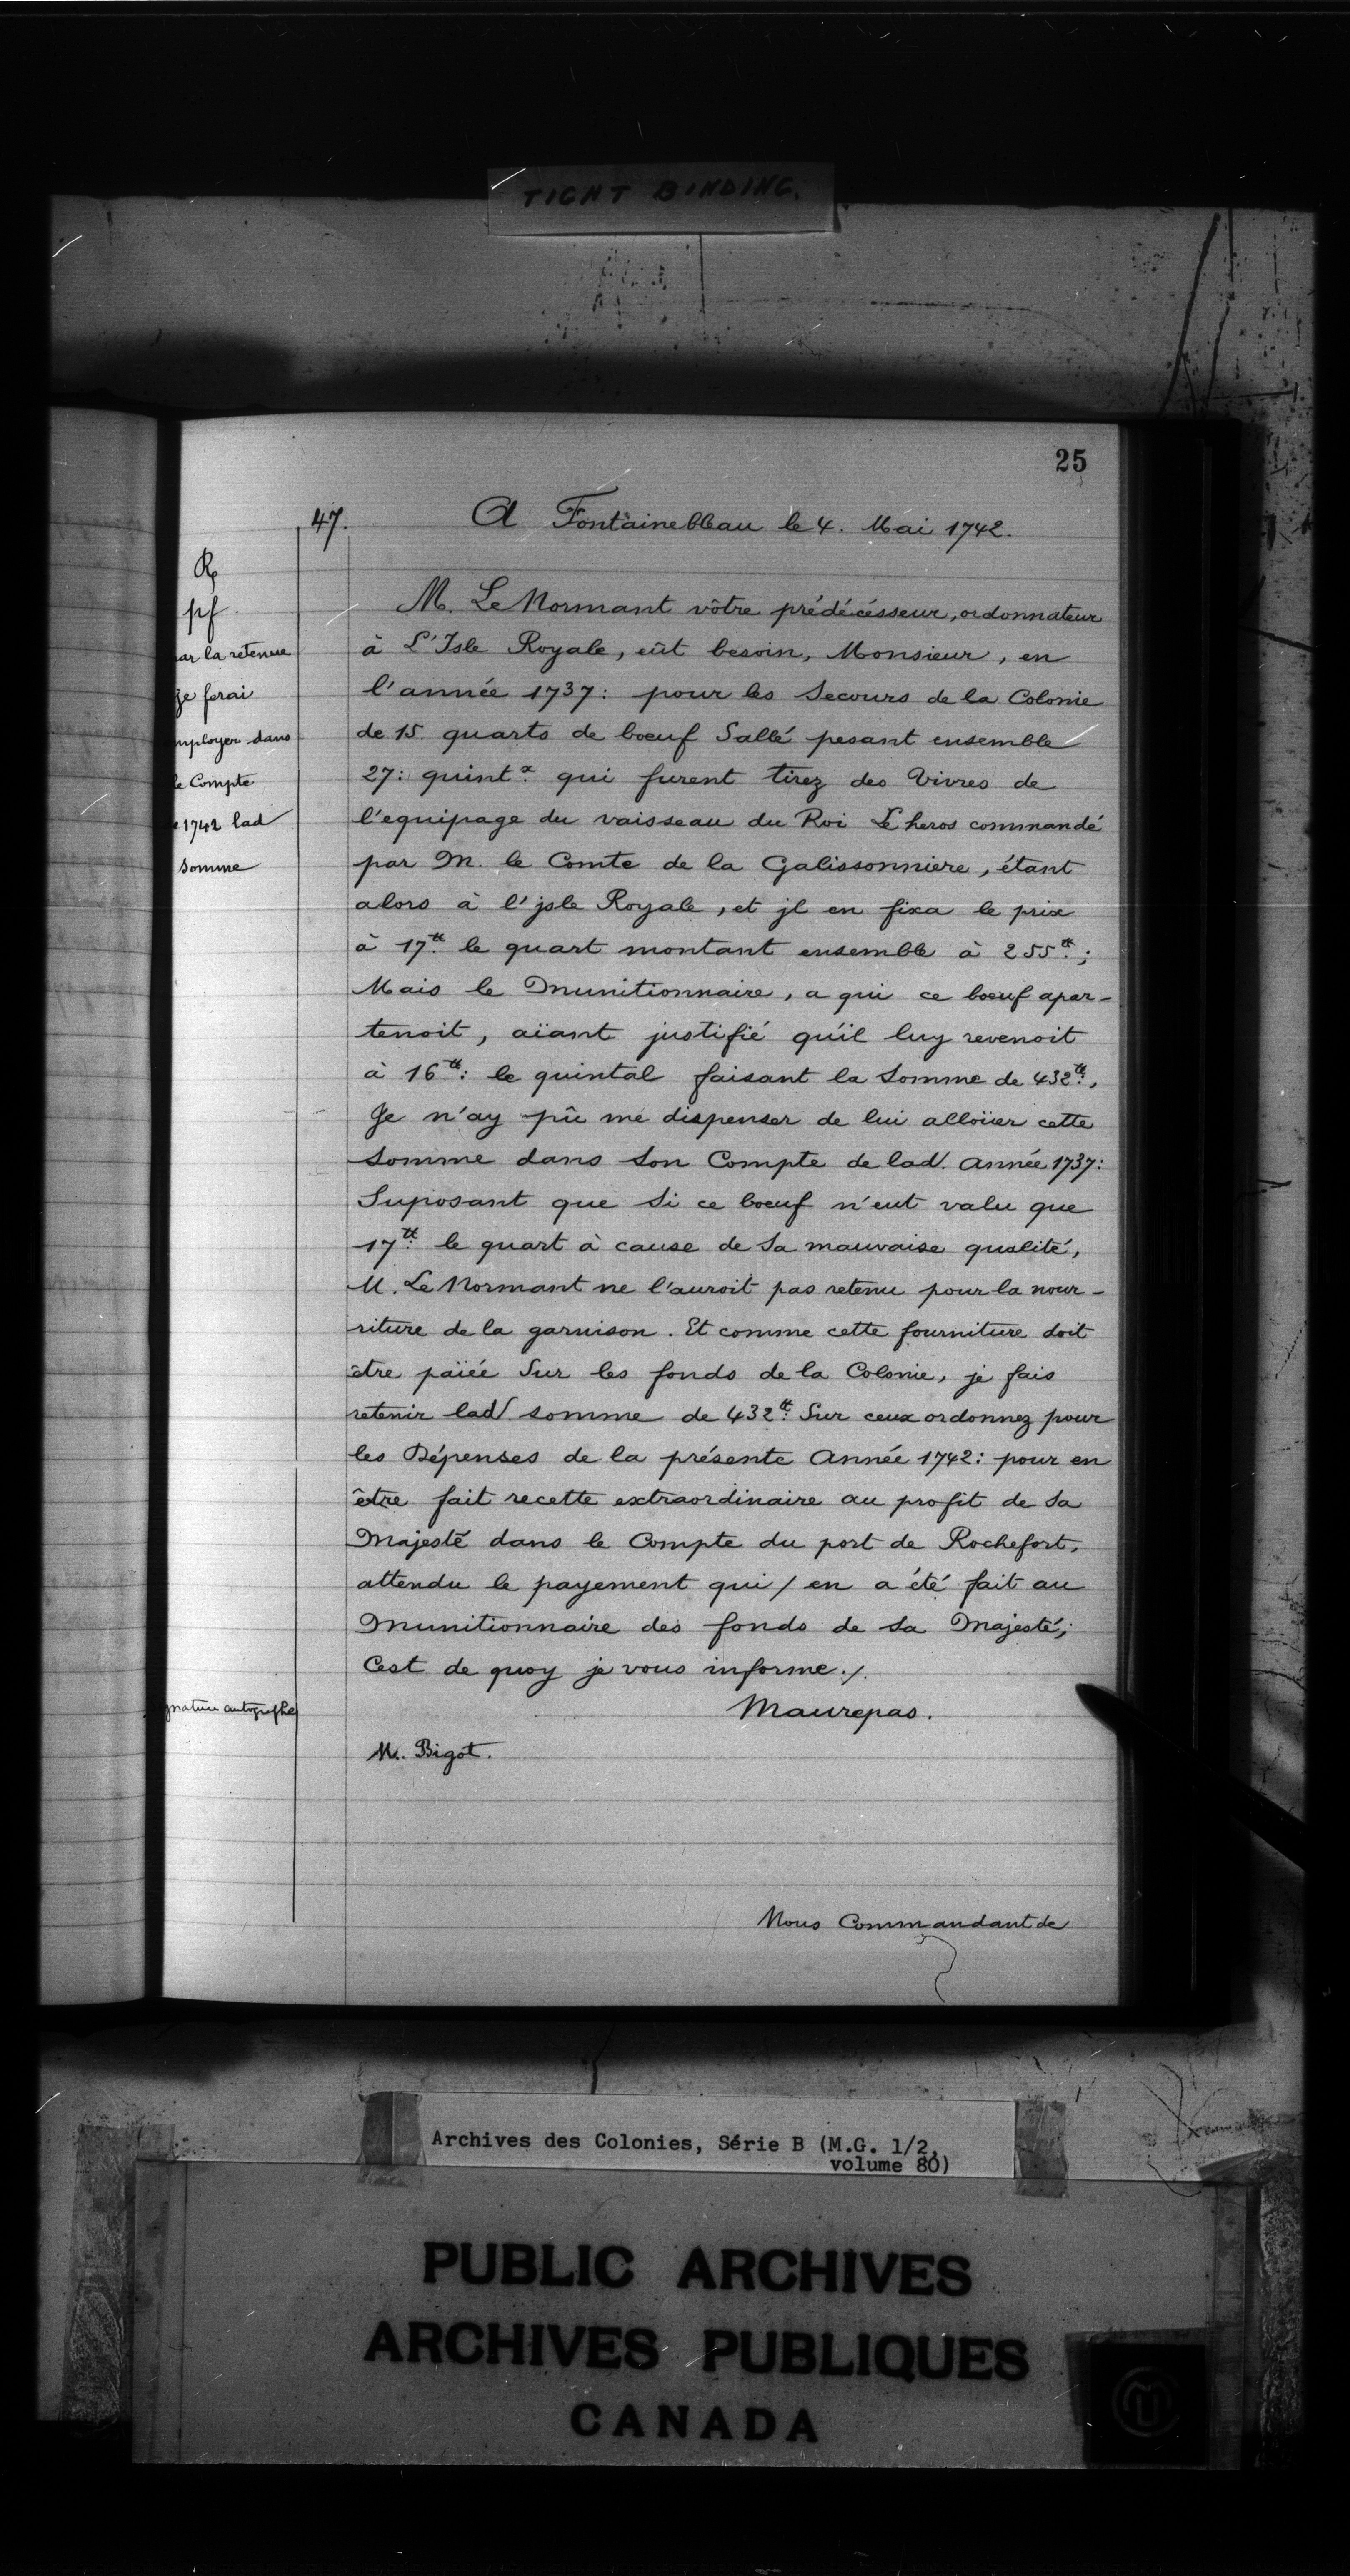 TIGHT BINDING.
25
47. A Fontainebleau le 4. Mai 1742.
R
pf.
par la retenue
je ferai
employer dans
le Compte
1742 lad
somme
M. Le Normant vôtre prédécésseur, ordonnateur
à L'Isle Royale, eût besoin, Monsieur, en
l'année 1737: pour les Secours de la Colonie
de 15. quarts de boeuf Sallé pesant ensemble
27: quint.x qui furent tirez des Vivres de
l'equipage du vaisseau du Roi Le heros commandé
par M. le Comte de la Galissonniere, étant
alors à l'jsle Royale, et jl en fixa le prix
à 17.tt le quart montant ensemble à 255.tt;
Mais le Munitionnaire, a qui ce boeuf apar-
tenoit, aïant justifié qu'il luy revenoit
à 16tt: le quintal faisant la Somme de 432.tt,
Je n'ay pû me dispenser de lui alloüer cette
Somme dans Son Compte de lad. année 1737:
Suposant que Si ce boeuf n'eut valu que
17.tt le quart à cause de Sa mauvaise qualité,
M. Le Normant ne l'auroit pas retenu pour la nour-
riture de la garnison. Et comme cette fourniture doit
être païée Sur les fonds de la Colonie, je fais
retenir lad somme de 432.tt Sur ceux ordonnez pour
les Dépenses de la présente Année 1742: pour en
être fait recette extraordinaire au profit de Sa
Majesté dans le Compte du port de Rochefort,
attendu le payement qui / en a été fait au
Munitionnaire des fonds de Sa Majesté;
C'est de quoy je vous informe./.
Maurepas.
gnature autographe
M. Bigot.
Nous Commandant de
Archives des Colonies, Série B (M.G. 1/2,
volume 80)
PUBLIC ARCHIVES
ARCHIVES PUBLIQUES
CANADA